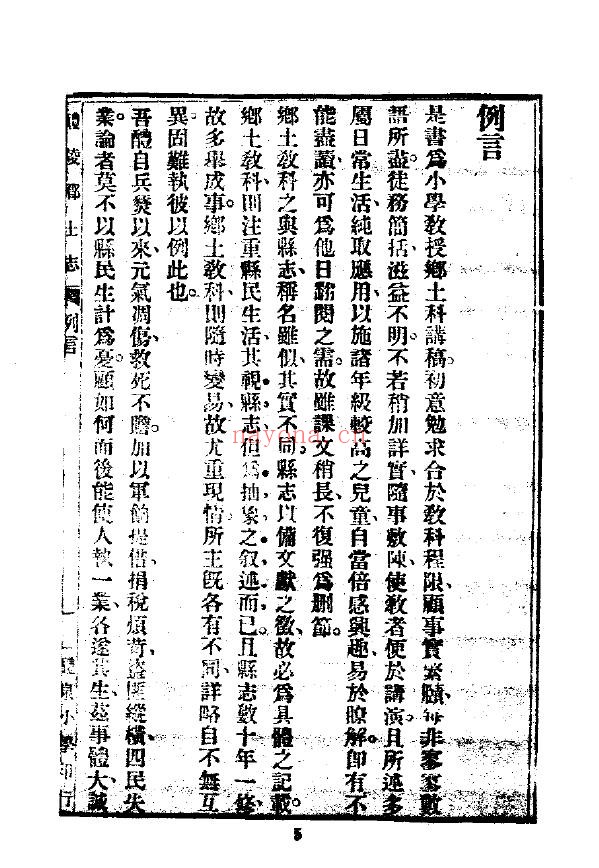 例言
是書爲小學教授鄉土科講稿初意勉求合於教科程限顧事實繁賾每非寥寥數
語所盡徒務簡括滋益不明不若稍加詳實隨事敷陳使教者便於講演且所述多
屬日常生活純取應用以施諸年級較高之兒童自當倍感興趣易於瞭解卽有不
能盡讀亦可爲他日繙閱之需故雖課文稍長不復强爲删節。
鄉土敎科之與縣志稱名雖似其實不同縣志以備文獻之徵故必爲具體之記載
鄉土敎科則注重縣民生活其視縣志但爲抽象之叙述而已且縣志數十年一修
故多舉成事鄉土敎科則隨時變易故尤重現情所主旣各有不同詳略自不無互
異固難執彼以例此也
吾醴自兵燹以來元氣凋傷救死不贍加以軍餉提借捐稅煩苛盜匪縱橫四民失
業論者莫不以縣民生計爲憂顧如何而後能使人執一業各遂其生茲事體大誠
醴陵鄉土志 例言
一
小學印行
5
nayona.cn